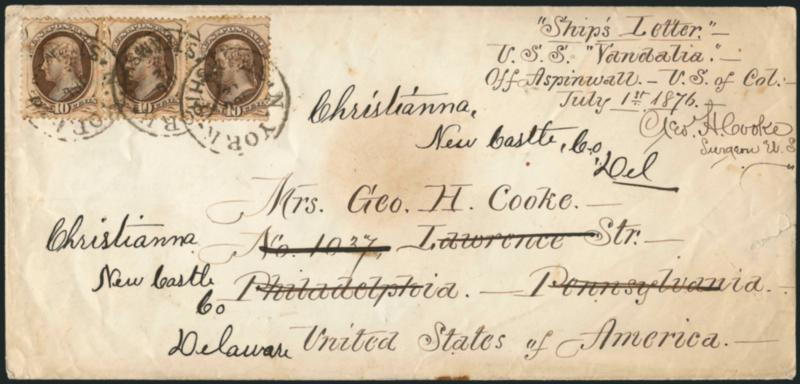 "Ship's Letter." —
U.S.S. "Vandalia." —
Off Aspinwall. — U.S. of Col: —
July 1st 1876. —
Geo. H. Cooke
Surgeon U.S.
Christiánna,
New Castle, Co
Del
Mrs. Geo. H. Cooke. —
No. 1037, Lawrence Str. —
Philadelphia. — Pennsylvania. —
United States of America. —
Christianna
New Castle
Co
Delaware
10 10 10
YORK